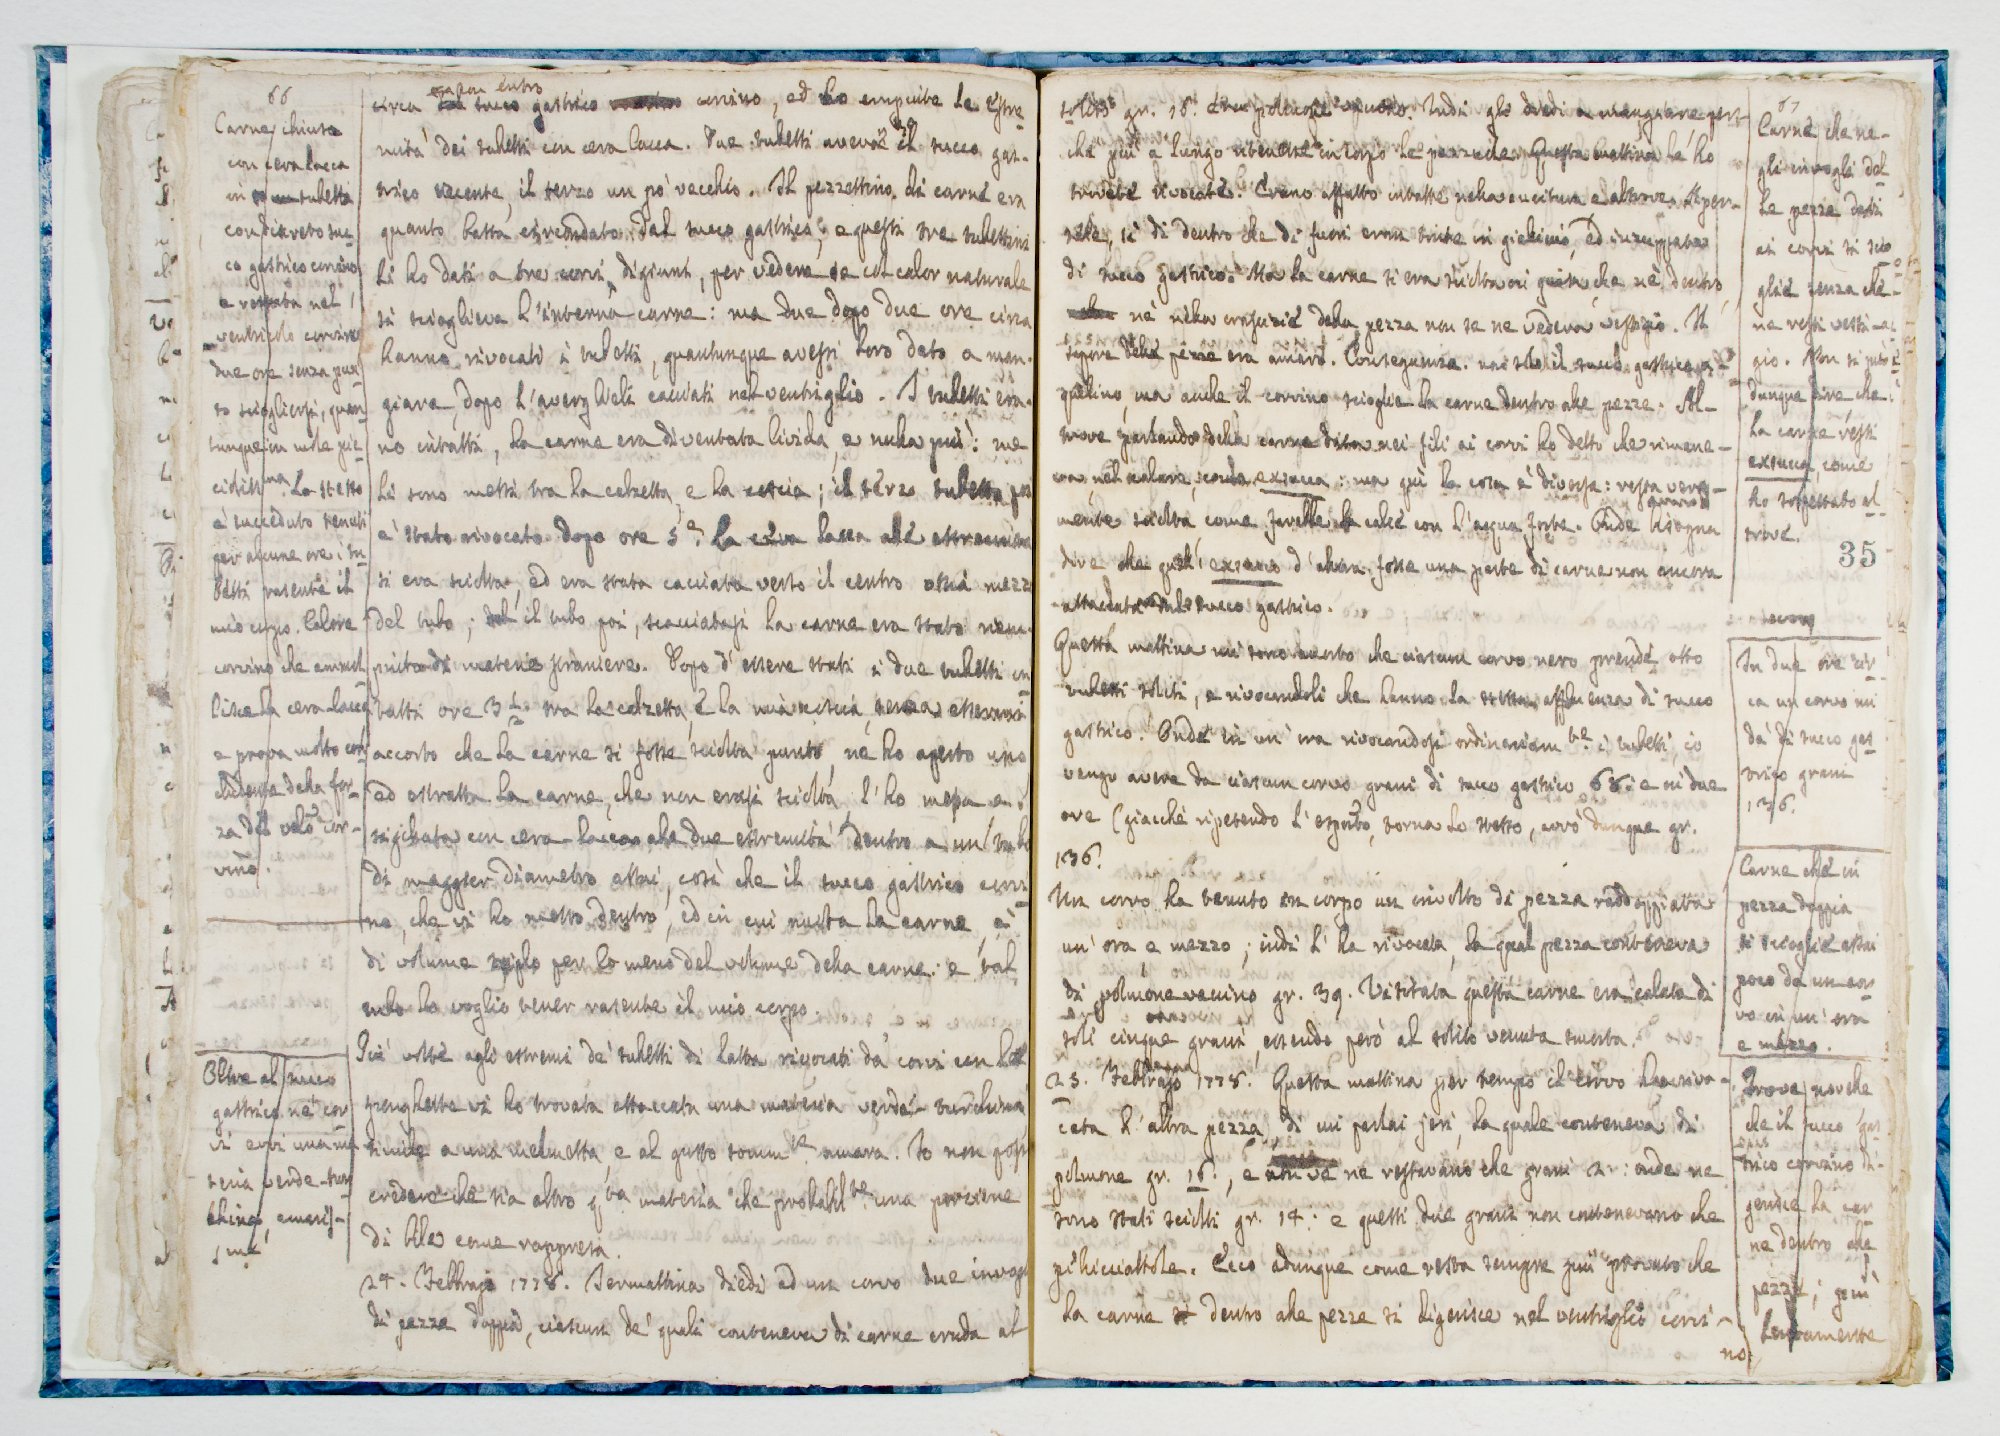 66
Carne chiusa
con cera lacca
in tubetto
con discreto suc-
co gastrico corvino
e restata nel
ventricolo corvino
due ore senza pun-
to sciogliersi, quan-
tunque in mole pic-
ciolissma. Lo stesso
è succeduto tenuti
per alcune ore i tu-
betti rasente il
mio corpo. Calore
corvino che ammol-
lisce la cera lacca
e prova molto con-
cludente della for-
za del corvino.
circa con entro succo gastrico corvino, ed ho empiute le estre-
mità dei tubetti con cera lacca. Due tubetti aveva il succo gas-
trico recente, il terzo un po' vecchio. Il pezzettino di carne era
quanto basta circondato dal succo gastrico; e questi tre tubettini
li ho dati a tre corvi digiuni, per vedere se col calor naturale
si scioglieva l'interna carne: ma due dopo due ore circa
hanno rivocati i tubetti, quantunque avessi loro dato a man-
giare, dopo l'averglieli cacciati nel ventriglio. I tubetti era-
no intatti, la carne era diventata livida, e nulla più: me
li sono messi tra la calzetta, e la coscia; il terzo tubetto poi
è stato rivocato dopo ore 5. La cera lacca alle estremità
si era sciolta, ed era stata cacciata verso il centro ossia mezzo
del tubo; il tubo poi, scacciatasi la carne era stato riem-
pito di materie straniere. Dopo d'essere stati i due tubetti in-
tatti ore 3 1/2 tra la calzetta, e la mia coscia, senza essermi
accorto che la carne si fosse sciolta punto, ne ho aperto uno
ed estratta la carne, che non erasi sciolta l'ho messa e
sigillata con cera-lacca alle due estremità dentro a un tubo
di maggior diametro assai, così che il succo gastrico corvi-
no, che vi ho messo dentro, ed in cui nuota la carne, è
di volume triplo per lo meno del volume della carne: e tal
tubo lo voglio tener rasente il mio corpo.
Oltre al succo
gastrico ne' cor-
vi evvi una ma-
teria verde-tur-
china, amaris-
sima.
Più volte agli estremi de' tubetti di latta rivocati da' corvi con le
spughette vi ho trovata attaccata una materia verde-turchina
simile a una melmetta, e al gusto somm.te amara. Io non posso
credere che sia altro q.ta materia che probabil.te una porzione
di bile come rappresa.
24. Febbrajo 1778. Jermattina diedi ad un corvo due invogli
di pezza doppia, ciascun de' quali conteneva di carne cruda al
solito gr. 16. Era polmone vaccino. Indi gli diedi a mangiare per-
chè più a lungo ritenesse in corpo le pezzuole. Questa mattina le ho
trovate rivocate. Erano affatto intatte nella cucitura e altrove. Aper-
tele, sì di dentro che di fuori erano tinte in gialliccio, ed inzuppate
di succo gastrico. Ma la carne si era sciolta in guisa, che nè dentro
nè nella crassizie della pezza non se ne vedeva vestigio. Il
sapore delle pezze era amaro. Conseguenza. non solo il succo gastrico a-
quilino, ma anche il corvino scioglie la carne dentro alle pezze. Al-
trove parlando della carne data nei fili ai corvi ho detto che rimane-
va, nel calare, come exsucca: ma quì la cosa è diversa: resta vera-
mente sciolta come farebbe la calce con l'acqua forte. Onde bisogna
dire che quell'exsucco d'allora fosse una parte di carne non ancora
attaccata dal succo gastrico.
Questa mattina mi sono accorto che ciascun corvo nero prende otto
tubetti soliti, e rivocandoli che hanno la stessa affluenza di succo
gastrico. Onde in un'ora rivocandosi ordinariam.te i tubetti, io
vengo avere da ciascun corvo grani di succo gastrico 68: e in due
ore (giacchè ripetendo l'esperito, torna lo stesso, avrò dunque gr.
136.
Un corvo ha tenuto in corpo un involto di pezza raddoppiata
un'ora, e mezzo; indi l'ha rivocata, la qual pezza conteneva
di polmone vaccino gr. 39. Visitata questa carne era calata di
soli cinque grani, essendo però al solito venuta smorta.
25. Febbrajo 1778. Questa mattina per tempo il corvo ha rivo-
cata l'altra pezza di cui parlai jeri, la quale conteneva di
polmone gr. 16., e non ve ne restavano che grani 2: onde ne
sono stati sciolti gr. 14: e questi due grani non contenevano che
pellicciattole. Ecco adunque come resta sempre più provato che
la carne dentro alle pezze si digerisce nel ventriglio corvi-
no.
67
Carne che ne-
gli invogli del-
le pezze dati
ai corvi si scio-
glie senza che
ne resti vesti-
gio. Non si può
dunque dire che
la carne resti
exsucca, come
ho sospettato al-
trove.
35
In due ore cir-
ca un corvo mi
dà di succo gas-
trico grani
136.
Carne che in
pezza doppia
si scioglie assai
poco da un cor-
vo in un'ora
e mezzo.
Prove novelle
che il succo gas-
trico corvino di-
gerisce la car-
ne dentro alle
pezze; più
lentamente